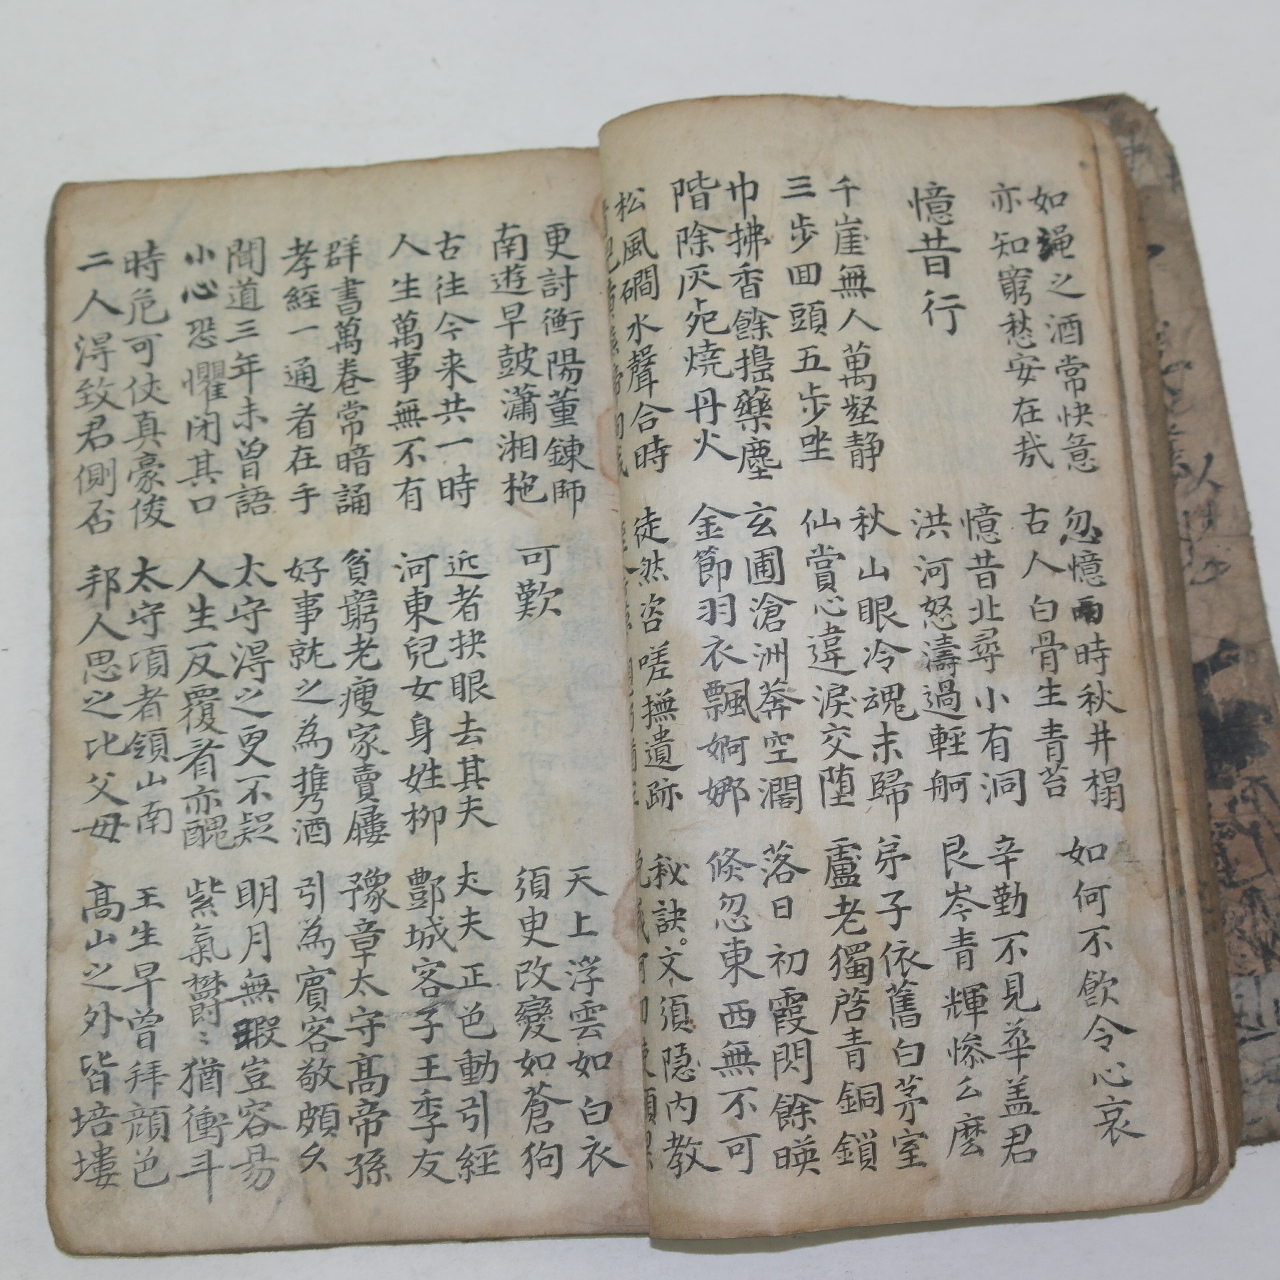 如渑之酒常快意
亦知窮愁安在哉
忽憶雨時秋井榻
古人白骨生青苔
如何不飲令心哀
憶昔行
憶昔北尋小有洞
洪河怒濤過輕舸
辛勤不見華盖君
艮岑青輝慘幺麽
千崖無人萬壑静
三步回頭五步坐
秋山眼冷魂未歸
仙賞心違淚交堕
弟子依舊白茅室
盧老獨啓青銅鎖
巾拂香餘搗藥塵
階除灰死燒丹火
玄圃滄洲莽空濶
金節羽衣飄婀娜
落日初霞閃餘暎
倏忽東西無不可
松風磵水聲合時
徒然咨嗟撫遺跡
秘訣。文須隱内教
更討衡陽董鍊师
南遊早皷瀟湘柂
可歎
天上浮雲如白衣
須臾改變如蒼狗
古徃今来共一時
人生萬事無不有
近者抉眼去其夫
河東兒女身姓柳
丈夫正色動引經
酆城客子王季友
群書萬卷常暗誦
孝經一通看在手
貧窮老瘦家賣屩
好事就之為携酒
豫章太守高帝孫
引為賓客敬頗久
聞道三年未曾語
小心恐懼閉其口
太守得之更不疑
人生反覆看亦醜
明月無瑕豈容易
紫氣欝〻猶衝斗
時危可仗真豪俊
二人得致君側否
太守頃者領山南
邦人思之比父母
王生早曾拜顔色
高山之外皆培塿